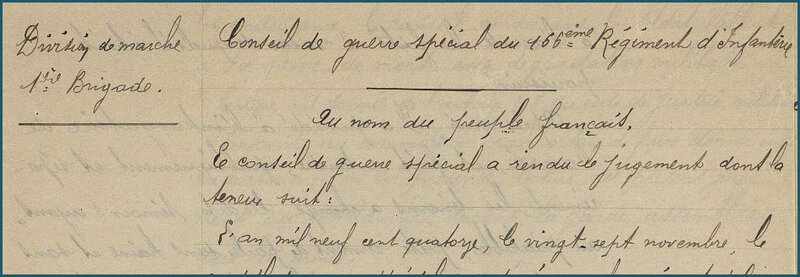 Division de marche
1ère Brigade.
Conseil de guerre spécial du 166ème Régiment d'Infanterie
Au nom du peuple français.
Le conseil de guerre spécial a rendu le jugement dont la
teneur suit:
L'an mil neuf cent quatorze, le vingt-sept novembre, le